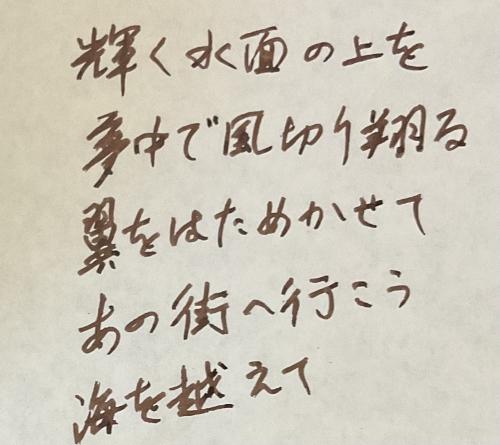 輝く水面の上を
夢中で風切り翔る
翼をはためかせて
あの街へ行こう
海を越えて